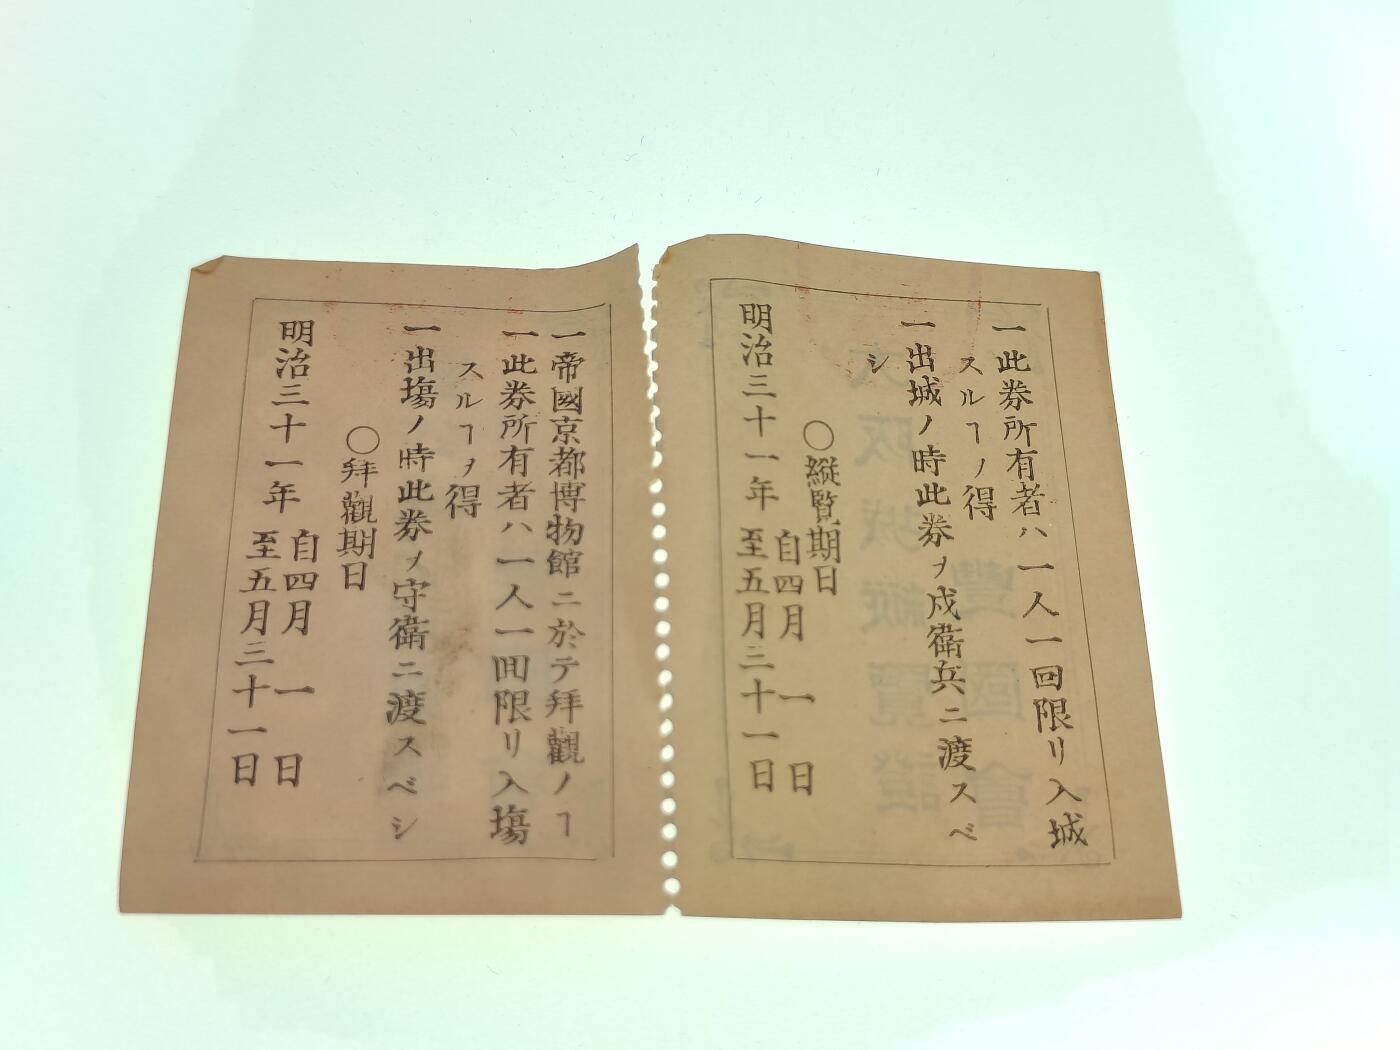 一此券所有者ハ一人一回限リ入城
スルヿヲ得
一出城ノ時此券ヲ戍衛兵ニ渡スベ
シ
○縦覧期日
明治三十一年
自四月一日
至五月三十一日
一帝國京都博物館ニ於テ拜觀ノヿ
一此券所有者ハ一人一囘限リ入塲
スルヿヲ得
一出塲ノ時此券ヲ守衛ニ渡スベシ
○拜觀期日
明治三十一年
自四月一日
至五月三十一日
豐國會
大阪城縦覽證